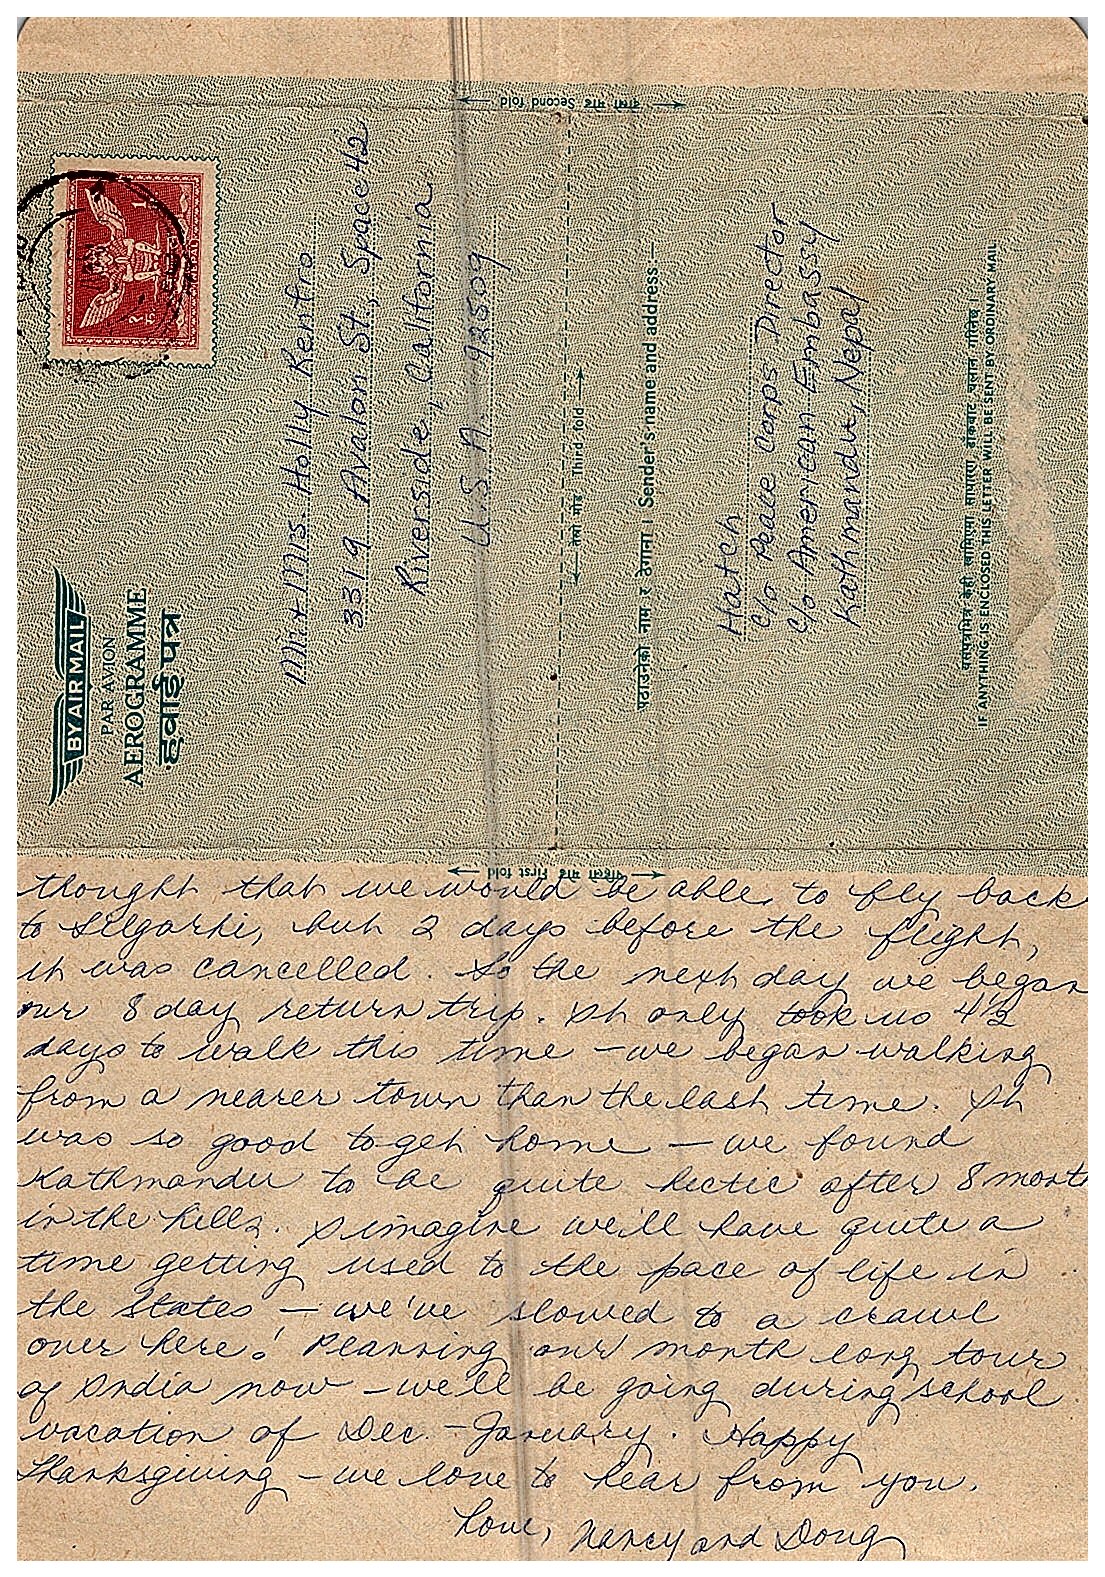 BY AIR MAIL
PAR AVION
AEROGRAMME
हवाई पत्र
Mr. + Mrs. Holly Rentro
3319 Avalon St, Space 42
Riverside, California
U.S.A. 92509
दोस्रो मोड Second fold
तेस्रो मोड Third fold
पठाउनेको नाम र ठेगाना । Sender's name and address
Hatch
c/o Peace Corps Director
c/o American Embassy
Kathmandu, Nepal
यस पत्रभित्र केही खामिएमा साधारण डाँकबाट चलान गरिनेछ ।
IF ANYTHING IS ENCLOSED THIS LETTER WILL BE SENT BY ORDINARY MAIL
पहिलो मोड First fold
thought that we would be able to fly back
to Silgarhi, but 2 days before the flight,
it was cancelled. So the next day we began
our 8 day return trip. It only took us 4½
days to walk this time – we began walking
from a nearer town than the last time. It
was so good to get home – we found
Kathmandu to be quite hectic after 8 month
in the hills. I imagine we'll have quite a
time getting used to the pace of life in
the States – we've slowed to a crawl
over here! Planning our month long tour
of India now – we'll be going during school
vacation of Dec. – January. Happy
Thanksgiving – we love to hear from you.
Love, Nancy and Doug